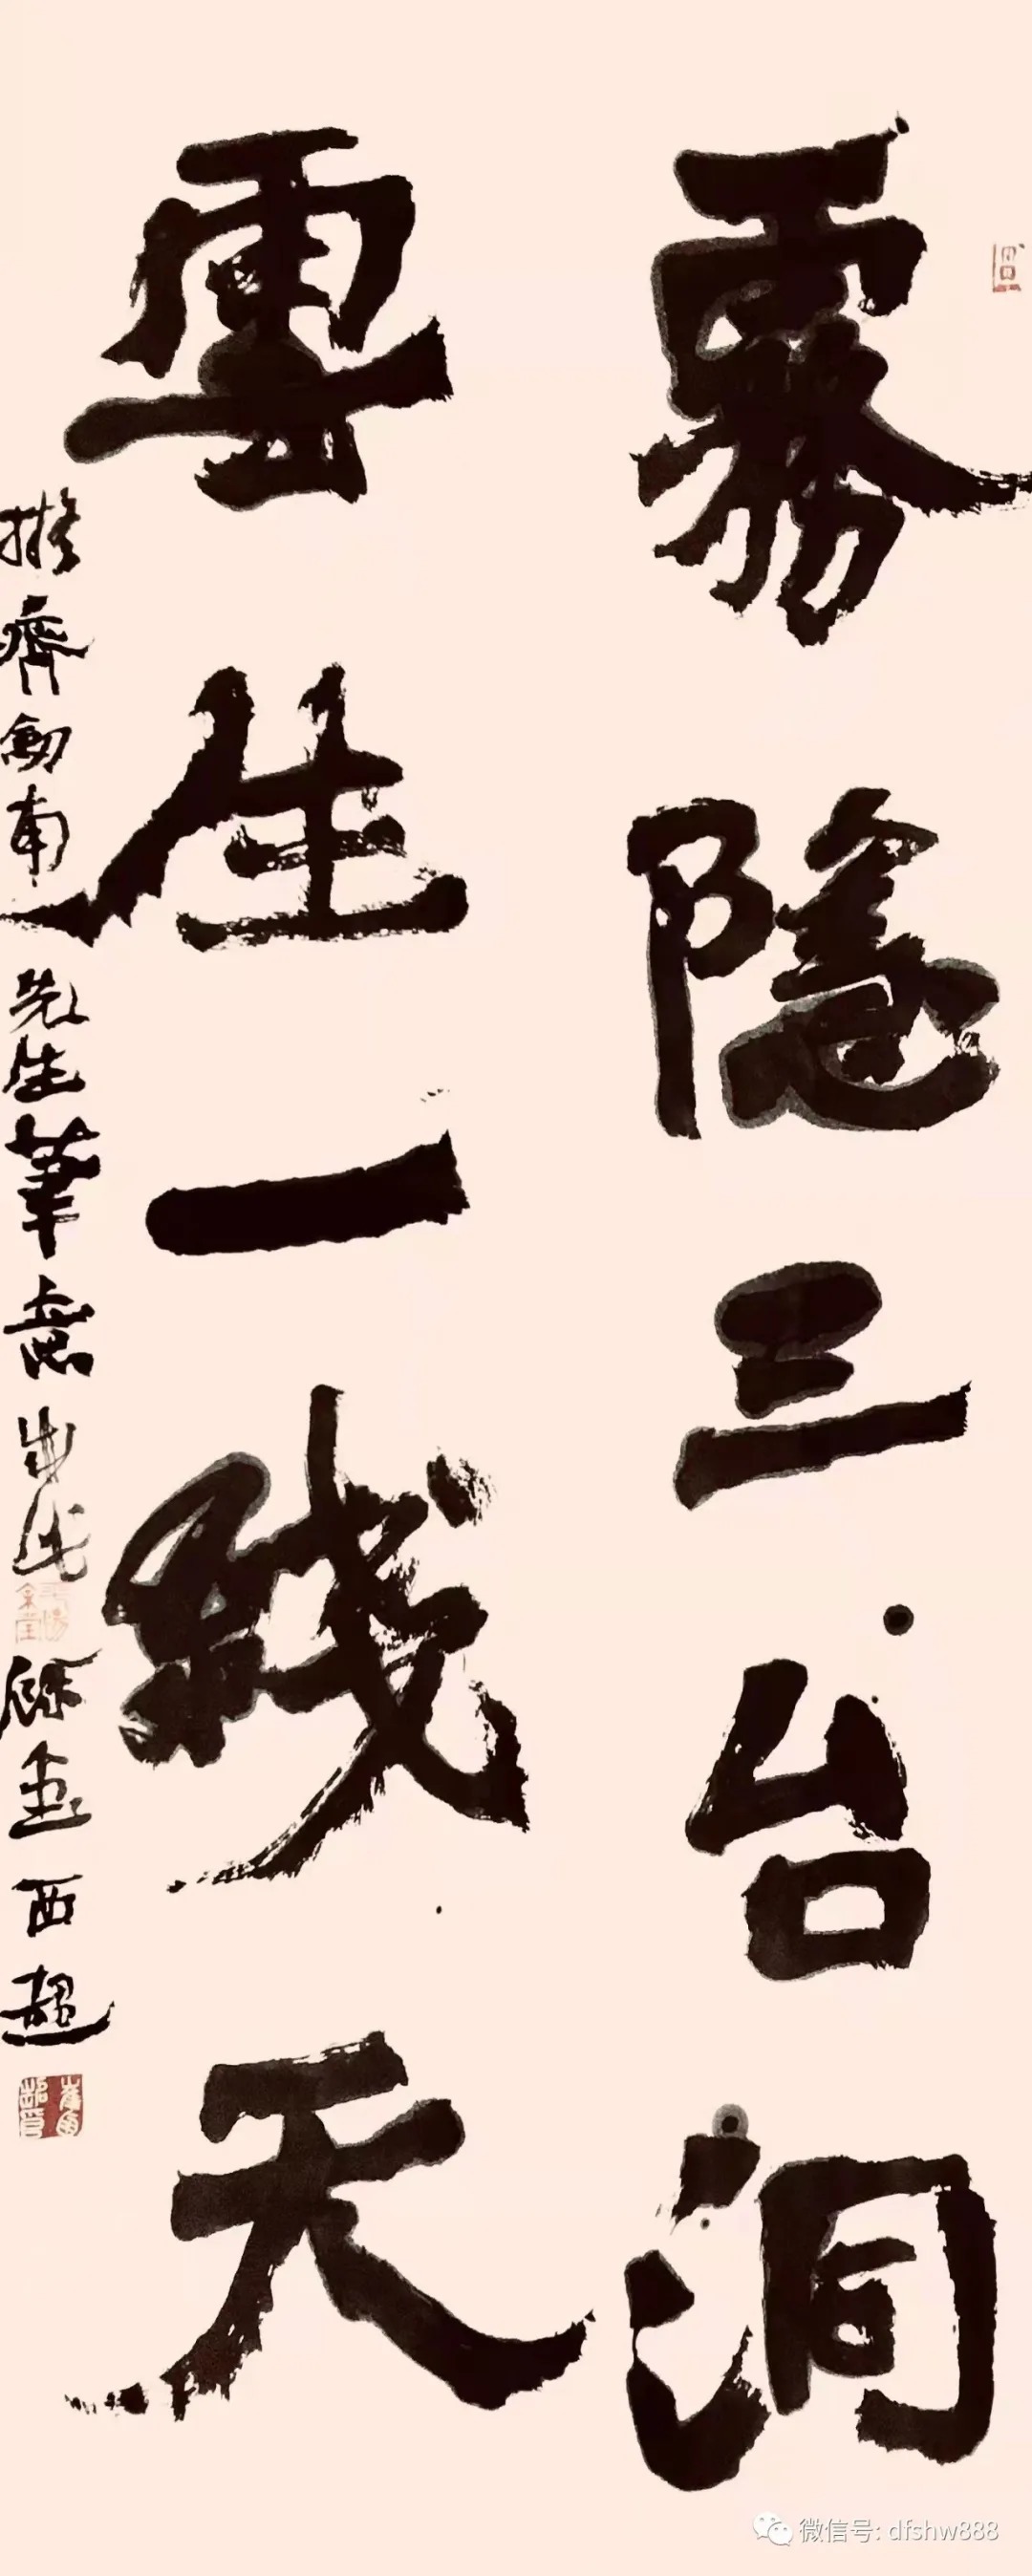 霧隱三台洞
雲生一线天
擬齊劍南先生筆意
西超
微信号: dfshw888